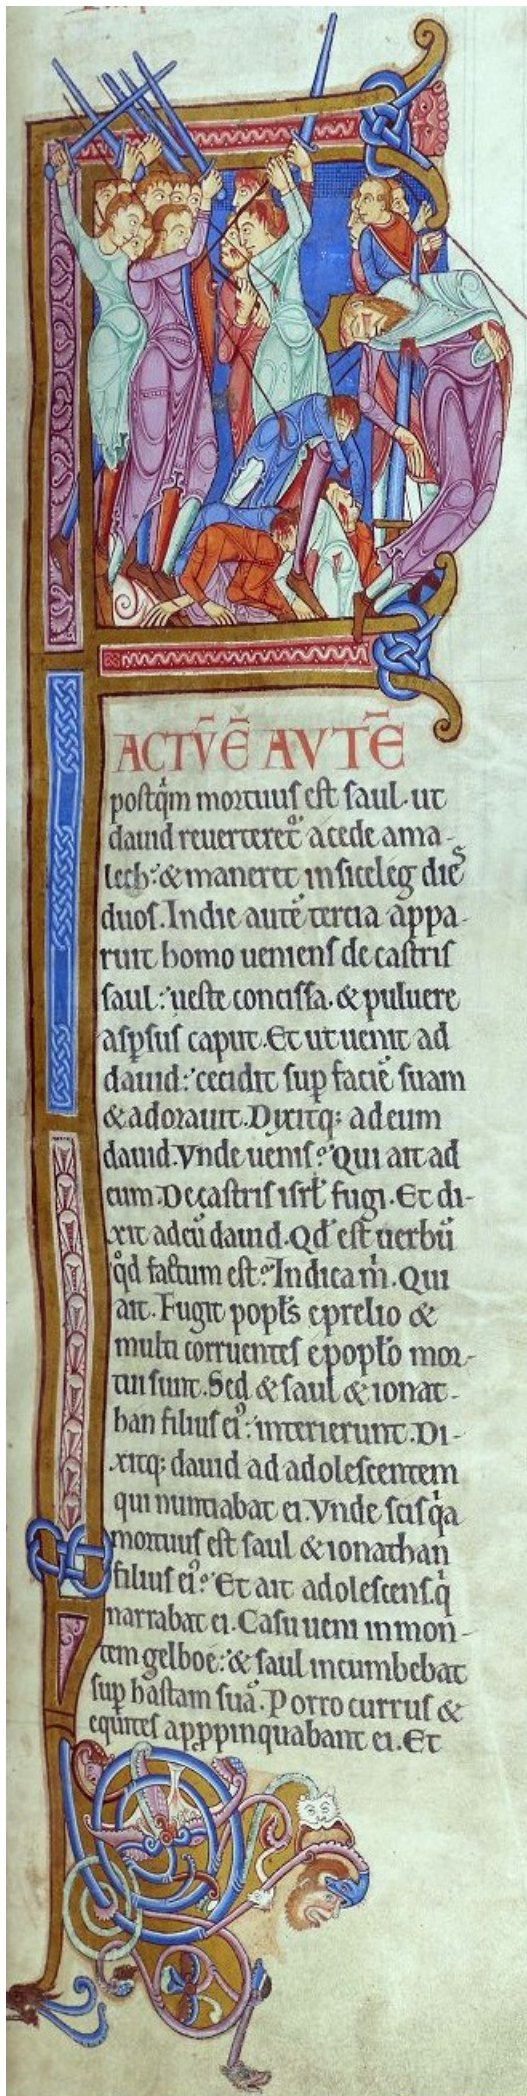 ACTV̄Ē AVTĒ
postq̄m mortuus est saul. ut
dauid reuerteret᷒ a cede ama-
lech: & maneret in siceleg dies
duos. In die autē tercia appa-
ruit homo ueniens de castris
saul: ueste concissa. & puluere
aspsus caput. Et ut uenit ad
dauid: cecidit sup faciē suam
& adorauit. Dixitq; ad eum
dauid. Vnde uenis? Qui ait ad
eum. De castris isrł fugi. Et di-
xit ad eū dauid. Qd̛ est uerbū
qd̛ factum est? Indica m̄. Qui
ait. Fugit popłs e prelio &
multi corruentes e popło mor-
tui sunt. Sed & saul & ionat-
han filius ei᷒: interierunt. Di-
xitq; dauid ad adolescentem
qui nuntiabat ei. Vnde scis q̄a
mortuus est saul & ionathan
filius ei᷒? Et ait adolescens. q̄
narrabat ei. Casu ueni in mon-
tem gelboe: & saul incumbebat
sup hastam suā. Porro currus &
equites appppinquabant ei. Et